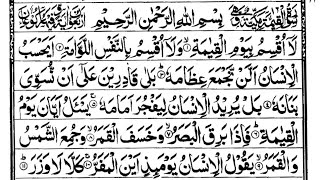 بِسْمِ اللّٰهِ الرَّحْمٰنِ الرَّحِيْمِ
لَاۤ اُقْسِمُ بِيَوْمِ الْقِيٰمَةِ ۙ۝۱ وَلَاۤ اُقْسِمُ بِالنَّفْسِ اللَّوَّامَةِ ؕ۝۲ اَيَحْسَبُ
الْاِنْسَانُ اَلَّنْ نَّجْمَعَ عِظَامَهٗ ؕ۝۳ بَلٰى قٰدِرِيْنَ عَلٰۤى اَنْ نُّسَوِّىَ
بَنَانَهٗ ۝۴ بَلْ يُرِيْدُ الْاِنْسَانُ لِيَفْجُرَ اَمَامَهٗ ۚ۝۵ يَسْـَٔلُ اَيَّانَ يَوْمُ
الْقِيٰمَةِ ؕ۝۶ فَاِذَا بَرِقَ الْبَصَرُ ۙ۝۷ وَخَسَفَ الْقَمَرُ ۙ۝۸ وَجُمِعَ الشَّمْسُ
وَالْقَمَرُ ۙ۝۹ يَقُوْلُ الْاِنْسَانُ يَوْمَئِذٍ اَيْنَ الْمَفَرُّ ۚ۝۱۰ كَلَّا لَا وَزَرَ ؕ۝۱۱